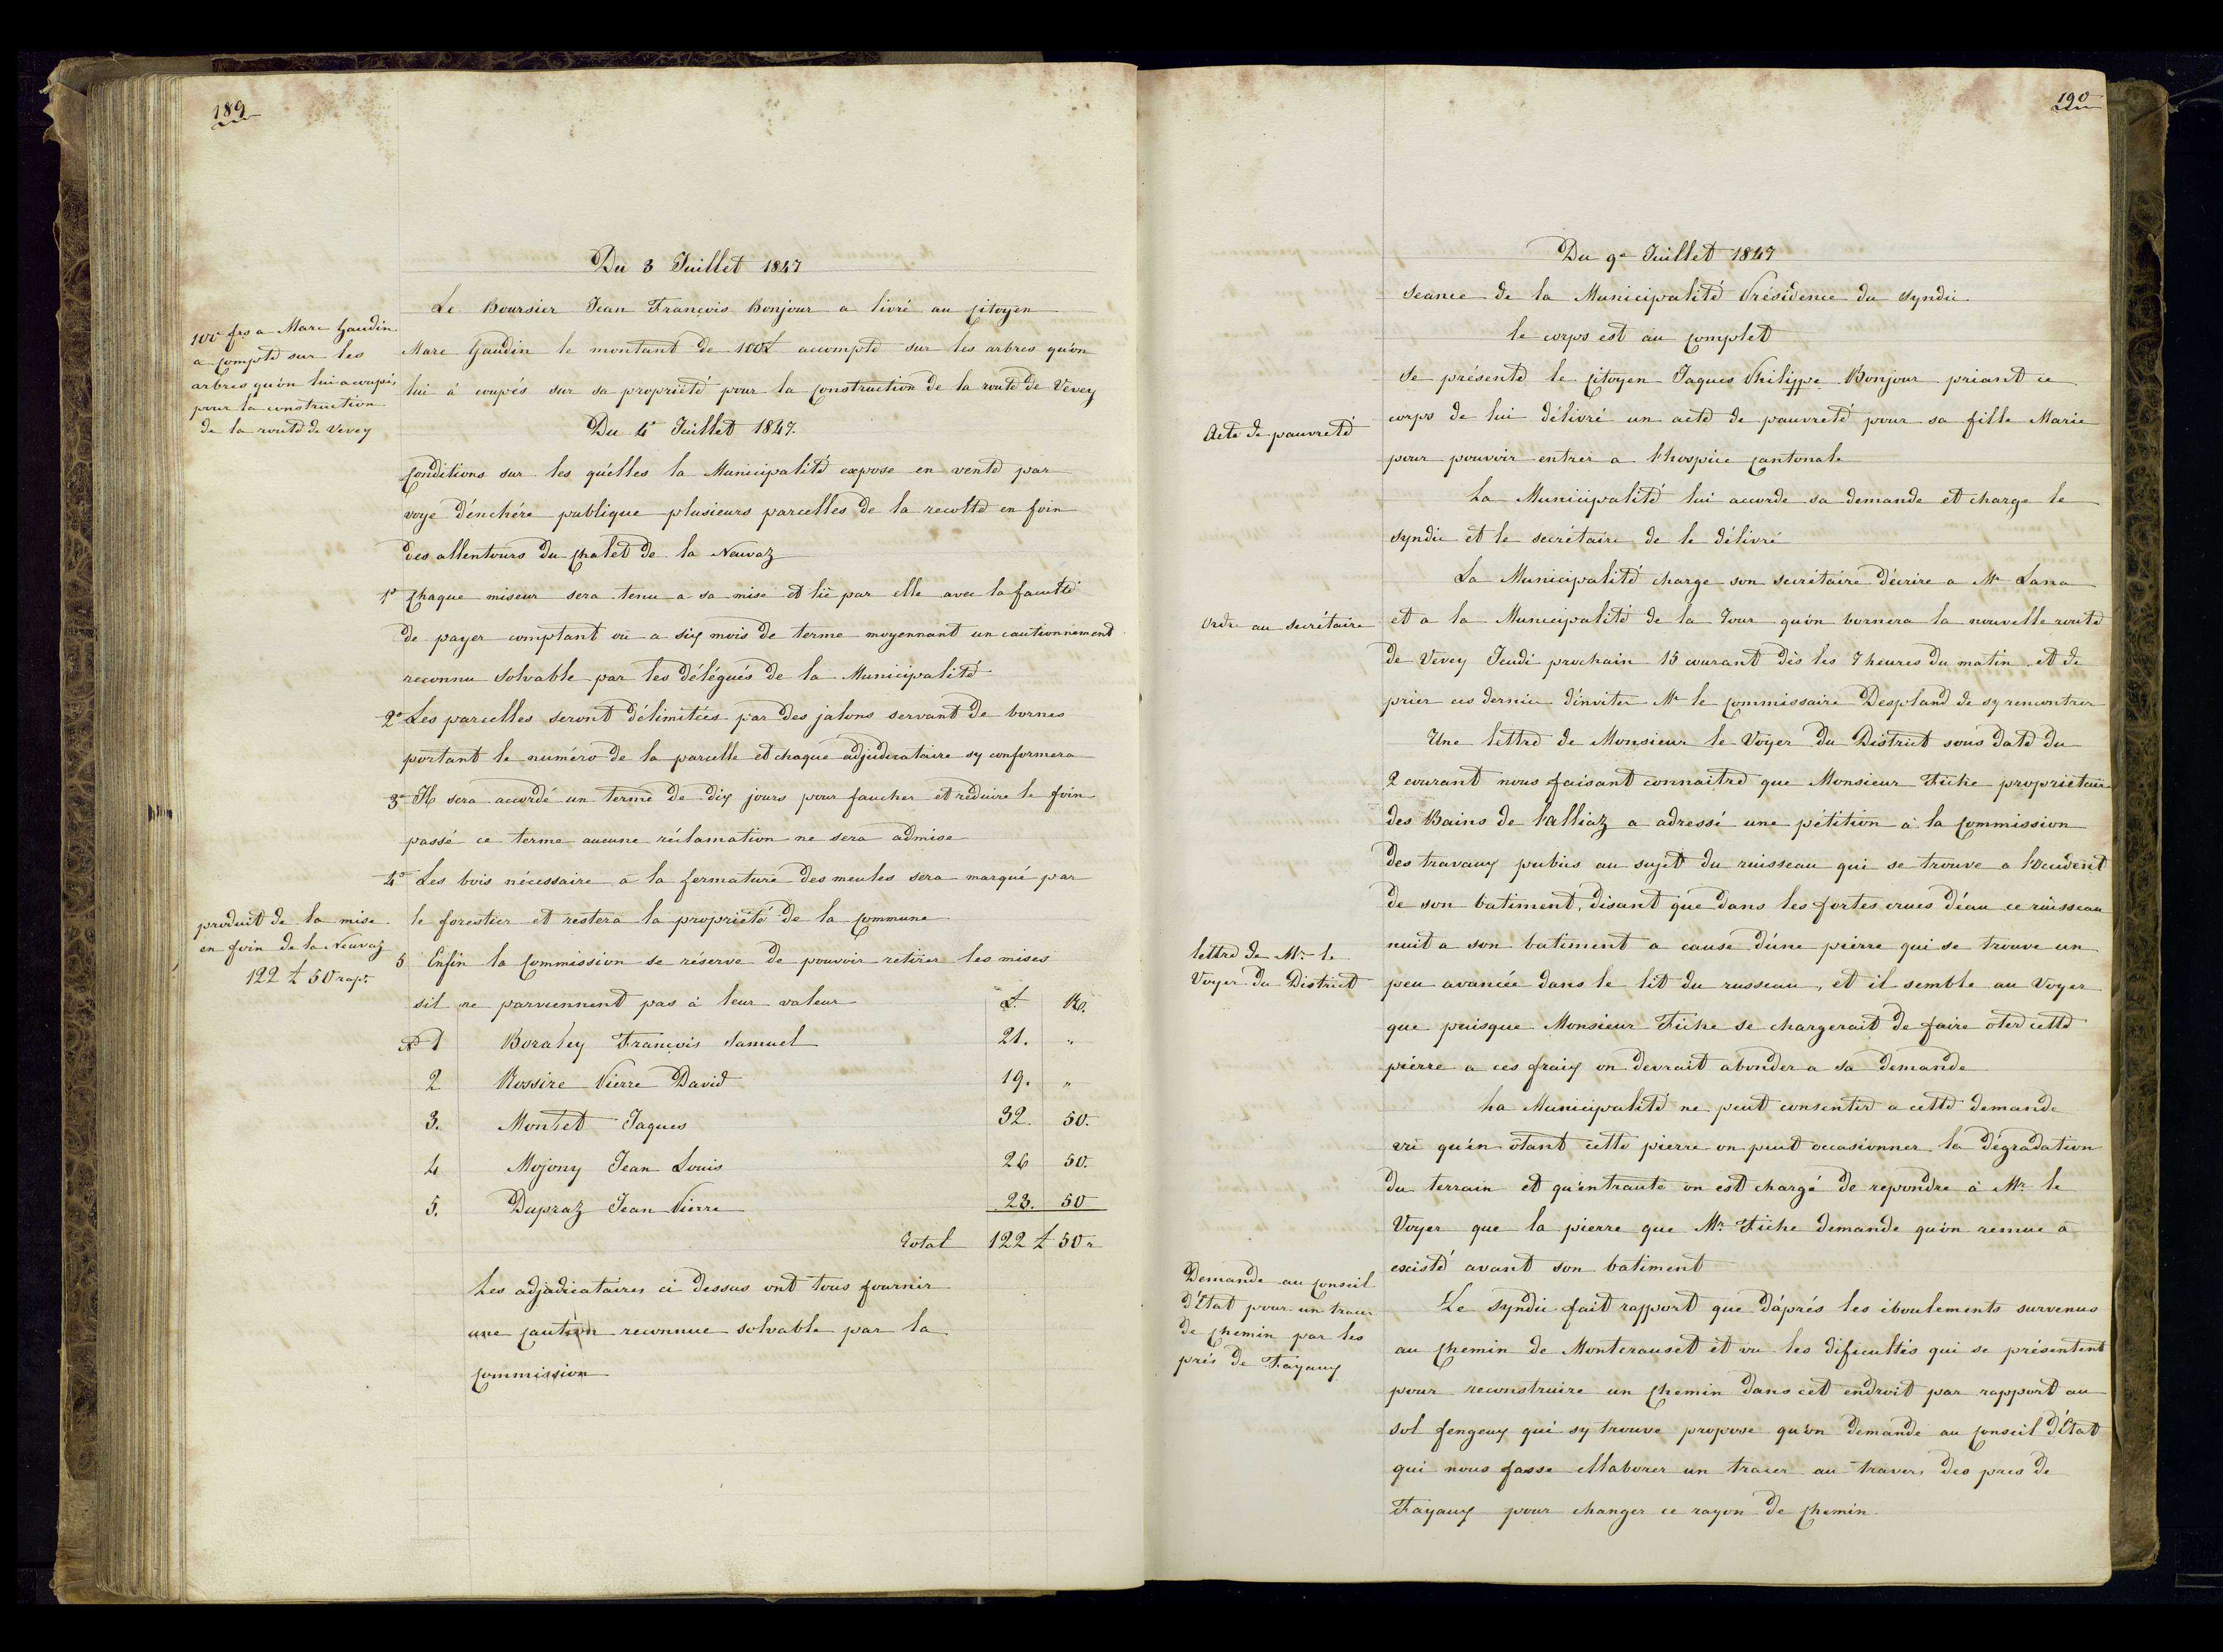 189
Du 3 Juillet 1847
Le Boursier Jean François Bonjour a livré au citoyen
Marc Gaudin le montant de 100£ accompte sur les arbres qu'on
lui à coupés sur sa propriété pour la construction de la route de Vevey
100 frs a Marc Gaudin
a compte sur les
arbres qu'on lui a coupés
pour la construction
de la route de Vevey
Du 4e Juillet 1847.
Conditions sur les quelles la Municipalité expose en vente par
voye d'enchére publique plusieurs parcelles de la recolte en foin
des allentours du chalet de la Neuvaz
1° Chaque miseur sera tenu a sa mise et lié par elle avec la faculté
de payer comptant ou a six mois de terme moyennant un cautionnement
reconnu solvable par les délégués de la Municipalité
2° Les parcelles seront délimitées par des jalons servant de bornes
portant le numéro de la parcelle et chaque adjudicataire sy conformera
3° Il sera accordé un terme de dix jours pour faucher et réduire le foin
passé ce terme aucune réclamation ne sera admise
4° Les bois nécessaire à la fermature des meules sera marqué par
le forestier et restera la propriété de la commune
5 Enfin la Commission se réserve de pouvoir retirer les mises
sil ne parviennent pas à leur valeur £. Rp.
produit de la mise
en foin de la Neuvaz
122 £ 50 rap.
N° 1 Boraley François Samuel 21. "
2 Rossire Pierre David 19. "
3. Montet Jaques 32. 50.
4 Mojony Jean Louis 26 50.
5. Dupraz Jean Pierre 23. 50
Total 122 £ 50 r
Les adjudicataires ci dessus ont tous fournir
une caution reconnue solvable par la
commission
190
Du 9e Juillet 1847
Séance de la Municipalité Présidence du Syndic
le corps est au complet
Se présente le citoyen Jaques Philippe Bonjour priant ce
corps de lui délivré un acte de pauvreté pour sa fille Marie
pour pouvoir entrer a l'hospice cantonale
Acte de pauvreté
La Municipalité lui accorde sa demande et charge le
syndic et le secrétaire de le délivré
La Municipalité charge son secrétaire d'écrire a Mr Lana
et a la Municipalité de la Tour qu'on bornera la nouvelle route
de Vevey Jeudi prochain 15 courant dès les 7 heures du matin et de
prier ces dernier d'inviter Mr le commissaire Despland de sy rencontrer
Ordre au secrétaire
Une lettre de Monsieur le Voyer du District sous date du
2 courant nous faisant connaitre que Monsieur Fiche propriétaire
des Bains de l'alliaz a adressé une pétition à la commission
des travaux pubics au sujet du ruisseau qui se trouve a l'occident
de son batiment, disant que dans les fortes crues d'eau ce ruisseau
nuit a son batiment a cause d'une pierre qui se trouve un
peu avancée dans le lit du russeau, et il semble au Voyer
que puisque Monsieur Fiche se chargerait de faire oter cette
pierre a ces fraix on devrait abonder a sa demande
lettre de Mr. le
Voyer du District
La Municipalité ne peut consenter a cette demande
vu qu'en otant cette pierre on peut occasionner la dégradation
du terrain et qu'entraute on est chargé de repondre à Mr. le
Voyer que la pierre que Mr. Fiche demande qu'on remue à
existé avant son batiment
Le syndic fait rapport que d'aprés les éboulements survenus
au chemin de Montcrauset et vu les dificultés qui se présentent
pour reconstruire un chemin dans cet endroit par rapport au
sol fengeux qui sy trouve propose qu'on demande au conseil d'État
qui nous fasse ellaborer un tracer au travers des pres de
Fayaux pour changer ce rayon de chemin
Demande au conseil
d'État pour un tracer
de chemin par les
prés de Fayaux